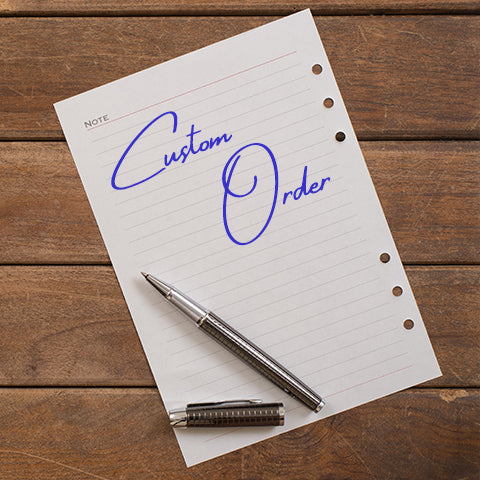 NOTE
Custom
Order